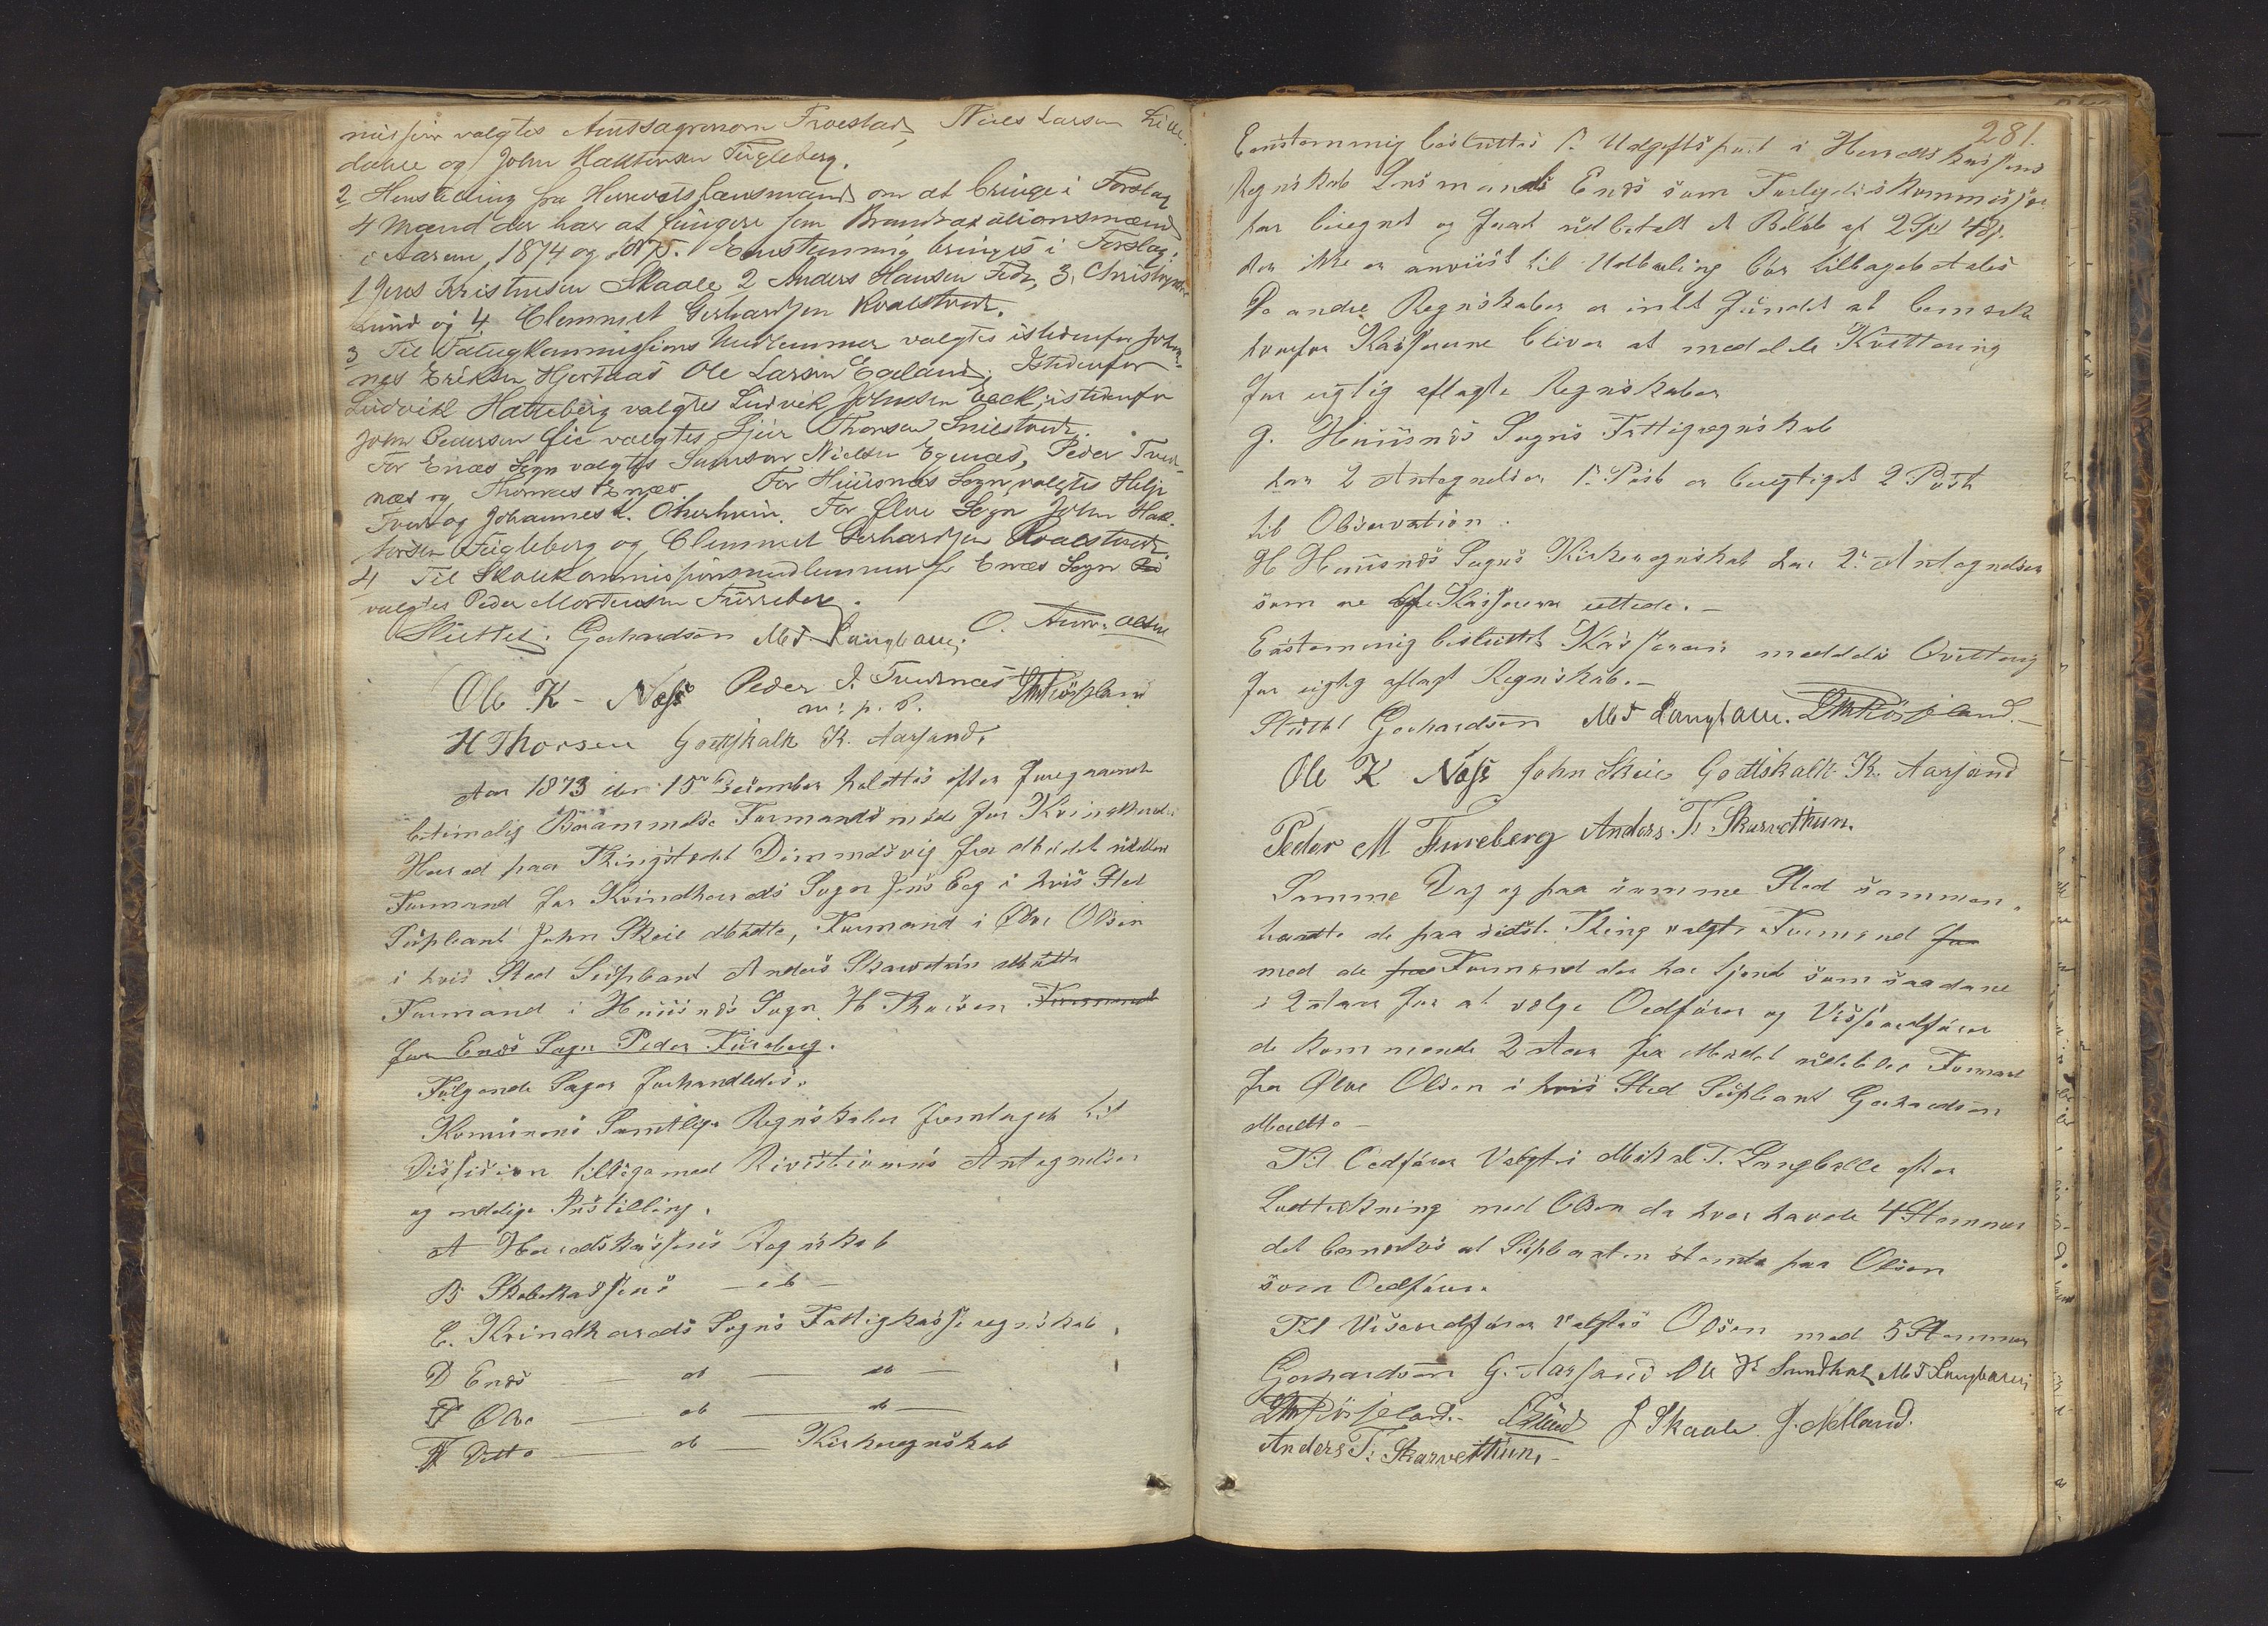 misjon valgtes Amtsagronom Frøestad, Niels Larsen Lille
dahle og John Haktorsen Fugleberg.
2 Henstilling fra Herredets Lensmand om at bringe i Forslag
4 Mænd der har at fungere som Brandtaxationsmænd
i Aarene, 1874 og 1875. Eenstemmig bringes i Forslag:
1 Jens Kristensen Skaale 2 Anders Hansen Feet, 3,
Lund og 4 Clemmet Gerhardsen Kvalstvedt.
3 Til Fattigkommissions Medlemmer valgtes istedenfor Johan-
nes Eriksen Hjortaas Ole Larsen Egeland, Istedenfor
Ludvik Hatteberg valgtes Ludvik Johnsen Eeck, istedenfor
John Pedersen Lie valgtes Sjur Thorsen Sniltvedt.
For Enæs Sogn valgtes Samson Nielsen Egenæs, Peder Tveit-
næs og Thomas Enæs. For Huusnæs Sogn valgtes Helje
Tveit og Johannes L. Opheim. For Ølve Sogn John Hak
torsen Fugleberg og Clemmet Gerhardsen Kvalstvedt.
4 Til Skolekommissionsmedlemmer for Enæs Sogn
valgtes Peder Mortensen Fureberg.
Sluttet. Gerhardson M T Langballe. O.
Ole K - Næss Peder J. Tveitnæs
m: p. P.
H Thorsen Gottskalk K. Aarsand.
Aar 1873 den 15de December holdtes efter foregaaende
betimelig Berammelse Formandsmøde for Kvindherreds
Herred paa Thingstedet Dimmelsvig fra Mødet udeblev
Formand for Kvindherreds Sogn Jens Eeg i hvis Sted
Supleant John Skeie Mødte, Formand i Ølve Olsen
i hvis Sted Supleant Anders Skarvetun Mødte
Formand i Huusnæs Sogn H Thorsen Formand
for Enæs Sogn Peder Fureberg.
Følgende Sager forhandledes.
Komunens Samtlige Regnskaber foretaget til
Dessision tilligemed Revisionens Antegnelser
og endelige Instilling.
A Herredskassens Regnskab
B Skolekassens — do —
C. Kvindherreds Sogns Fattigkasseregnskab
D Enæs — do — do —
E Ølve — do — do —
F Ditto — do — Kirkeregnskab
281.
Eenstemmig besluttes 1ste Udgiftspost i Herredskassens
Regnskab Lensmand Enæs som Forligelseskommissær
har beregnet og faaet udbetalt et Beløb af 2 Spd 48 s.
der ikke er anviist til Udbetaling bør tilbagebetales
De andre Regnskaber er intet fundet at bemærke
hvorfor Kassererne bliver at meddele Kvittering
for rigtig aflagte Regnskaber
G. Huusnæs Sogns Fattigregnskab
har 2 Antegnelser 1ste Post er berigtiget 2 Post
til Observation.
H Huusnæs Sogns Kirkeregnskab har 2de Antegnelser
som ere af Kasseren rettede. —
Eenstemmig besluttet Kassereren meddeles Qvittering
for rigtig aflagt Regnskab. —
Sluttet Gerhardson M T Langballe.
Ole K Næss John Skeie Gottskalk K. Aarsand
Peder M Fureberg Anders T. Skarvethun.
Samme Dag og paa samme Sted sammen-
traadte de paa sidste Thing valgte Formænd for
med de Formænd der har tjent som saadane
i 2 Aar for at vælge Ordfører og Viseordfører
de kommende 2 Aar fra Mødet udeblev Formand
fra Ølve Olsen i hvis Sted Supleant Gerhardson
Mødte —
Til Ordfører Valgtes Mikal T. Langballe efter
Lodtrekning med Olsen da hver havde 4 Stemmer
det bemerkes at Supleanten stemte paa Olsen
som Ordfører.
Til Viseordfører valgtes Olsen med 5 Stemmer
Gerhardson G. Aarsand Ole H Sundhal M T Langballe
Lund J Skaale J. Netland.
Anders T. Skarvethun. —